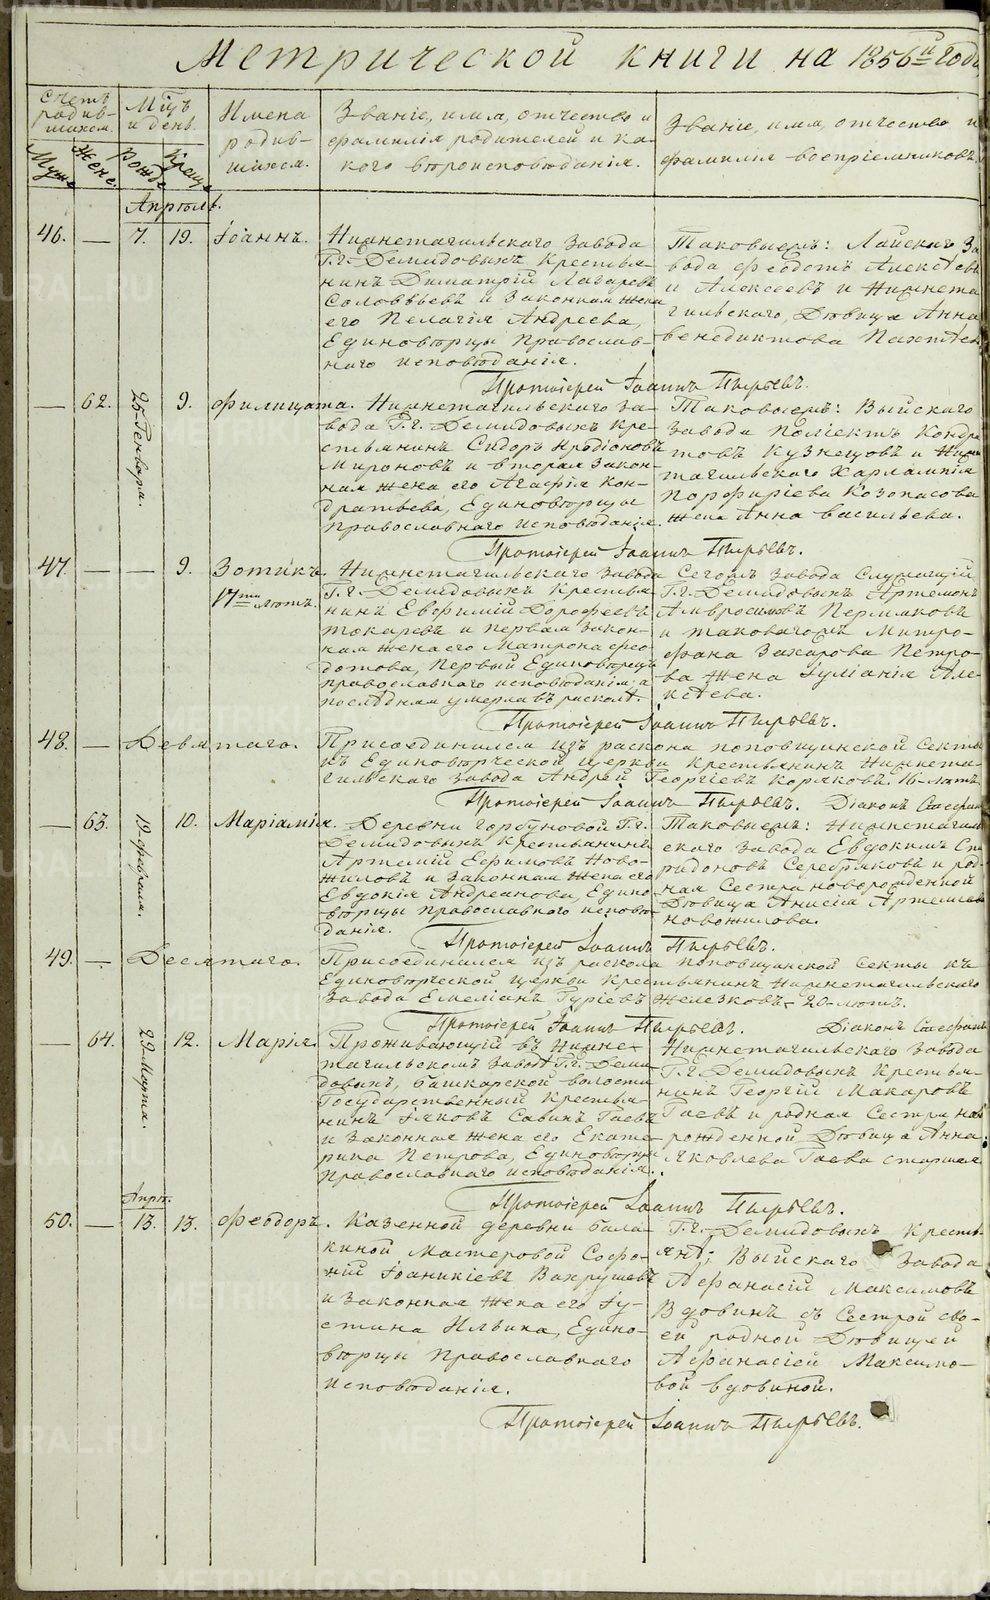 Метрической книги на 1856й годъ
Счетъ родив-шихся.
Муже
Жене.
Мцъ и день.
Рожде
Креще
Имена родив-шихся.
Званіе, имя, отчество и
фамилія родителей и ка-
кого вѣроисповѣданія.
Званіе, имя, отчество и
фамилія воспріемниковъ
Апрѣль.
46. — 7. 19. Іоаннъ.
Нижнетагильскаго завода
Г.г. Демидовыхъ крестья-
нинъ Димитрій Лазаревъ
Соловьевъ и законная жена
его Пелагія Андреева,
Единовѣрцы Православ-
наго исповѣданія.
Таковыемъ: Лайскаго за
вода Феодотъ Алексѣевъ
и Алексеевъ и Нижнета
гильскаго, Дѣвица Анна
Венедиктова
Протоіерей Іоаннъ Пырьевъ.
— 62. 25 Генваря. 9. Филицата.
Нижнетагильскаго за-
вода Г.г. Демидовыхъ кре-
стьянинъ Сидоръ Иродіоновъ
Мироновъ и вторая закон-
ная жена его Агафія Кон-
дратьева, Единовѣрцы
Православнаго исповѣданія.
Таковыемъ: Выйскаго
завода Поліектъ Кондра
товъ Кузнецовъ и Нижне
тагильскаго Харлампія
Порфиріева Козопасова
жена Анна Васильева.
Протоіерей Іоаннъ Пырьевъ.
47. — — 9. Зотикъ.
17ти лѣтъ.
Нижнетагильскаго завода
Г.г. Демидовыхъ крестья
нинъ Евфимій Дорофеевъ
Токаревъ и первая закон-
ная жена его Матрона Фео-
дотова, Первый Единовѣрецъ
православнаго исповѣданія; а
послѣдняя умерла въ расколѣ.
Сегожъ завода Служащій
Г.г. Демидовыхъ Артемонъ
Амвросимовъ Перляковъ
и таковагожъ Митро-
фана Захарова Петро-
ва жена Іуліанія Але-
ксѣева.
Протоіерей Іоаннъ Пырьевъ.
48. — Девятаго.
Присоединился изъ раскола поповщинской секты
къ Единовѣрческой церкви крестьянинъ Нижнета-
гильскаго завода Андрей Георгіевъ Коряковъ. 16-лѣтъ
Протоіерей Іоаннъ Пырьевъ. Діаконъ Стефанъ
— 63. 19 Февраля. 10. Маріамія.
Деревни Горбуновой Г.г.
Демидовыхъ крестьянинъ
Артемій Ефимовъ Ново-
жиловъ и законная жена его
Евдокія Андреанова, Едино-
вѣрцы Православнаго исповѣ-
данія.
Таковыемъ: Нижнетагиль
скаго завода Евдокимъ Спи
ридоновъ Серебряковъ и род-
ная Сестра новорожденной
Дѣвица Анисія Артемьева
Новожилова.
Протоіерей Іоаннъ Пырьевъ.
49. — Десятаго.
Присоединился изъ раскола поповщинской секты къ
Единовѣрческой церкви крестьянинъ Нижнетагильскаго
завода Емеліанъ Гуріевъ Железковъ 20-лѣтъ.
Протоіерей Іоаннъ Пырьевъ. Діаконъ Стефанъ
— 64. 29 Марта. 12. Марія.
Проживающій въ Нижне-
тагильскомъ заводѣ Г.г. Деми-
довыхъ, Башкарской волости
Государственный крестья-
нинъ Іяковъ Савинъ Гаевъ
и законная жена его Екате-
рина Петрова, Единовѣрцы
Православнаго исповѣданія.
Нижнетагильскаго завода
Г.г. Демидовыхъ крестья-
нинъ Георгій Макаровъ
Гаевъ и родная Сестра ново
рожденной Дѣвица Анна
Іяковлева Гаева старшая
Протоіерей Іоаннъ Пырьевъ.
Апрѣ.
50. — 13. 13. Феодоръ.
Казенной деревни Бала-
киной Мастеровой Софро-
ній Іоаникіевъ Вахрушевъ
и законная жена его Іу-
стина Ильина, Едино-
вѣрцы Православнаго
исповѣданія.
Г.г. Демидовыхъ кресть-
янѣ; Выйскаго завода
Афанасій Максимовъ
Вдовинъ съ Сестрой сво-
ей родной Дѣвицей
Афанасіей Максимо-
вой Вдовиной.
Протоіерей Іоаннъ Пырьевъ.
METRIKI.GASO-URAL.RU